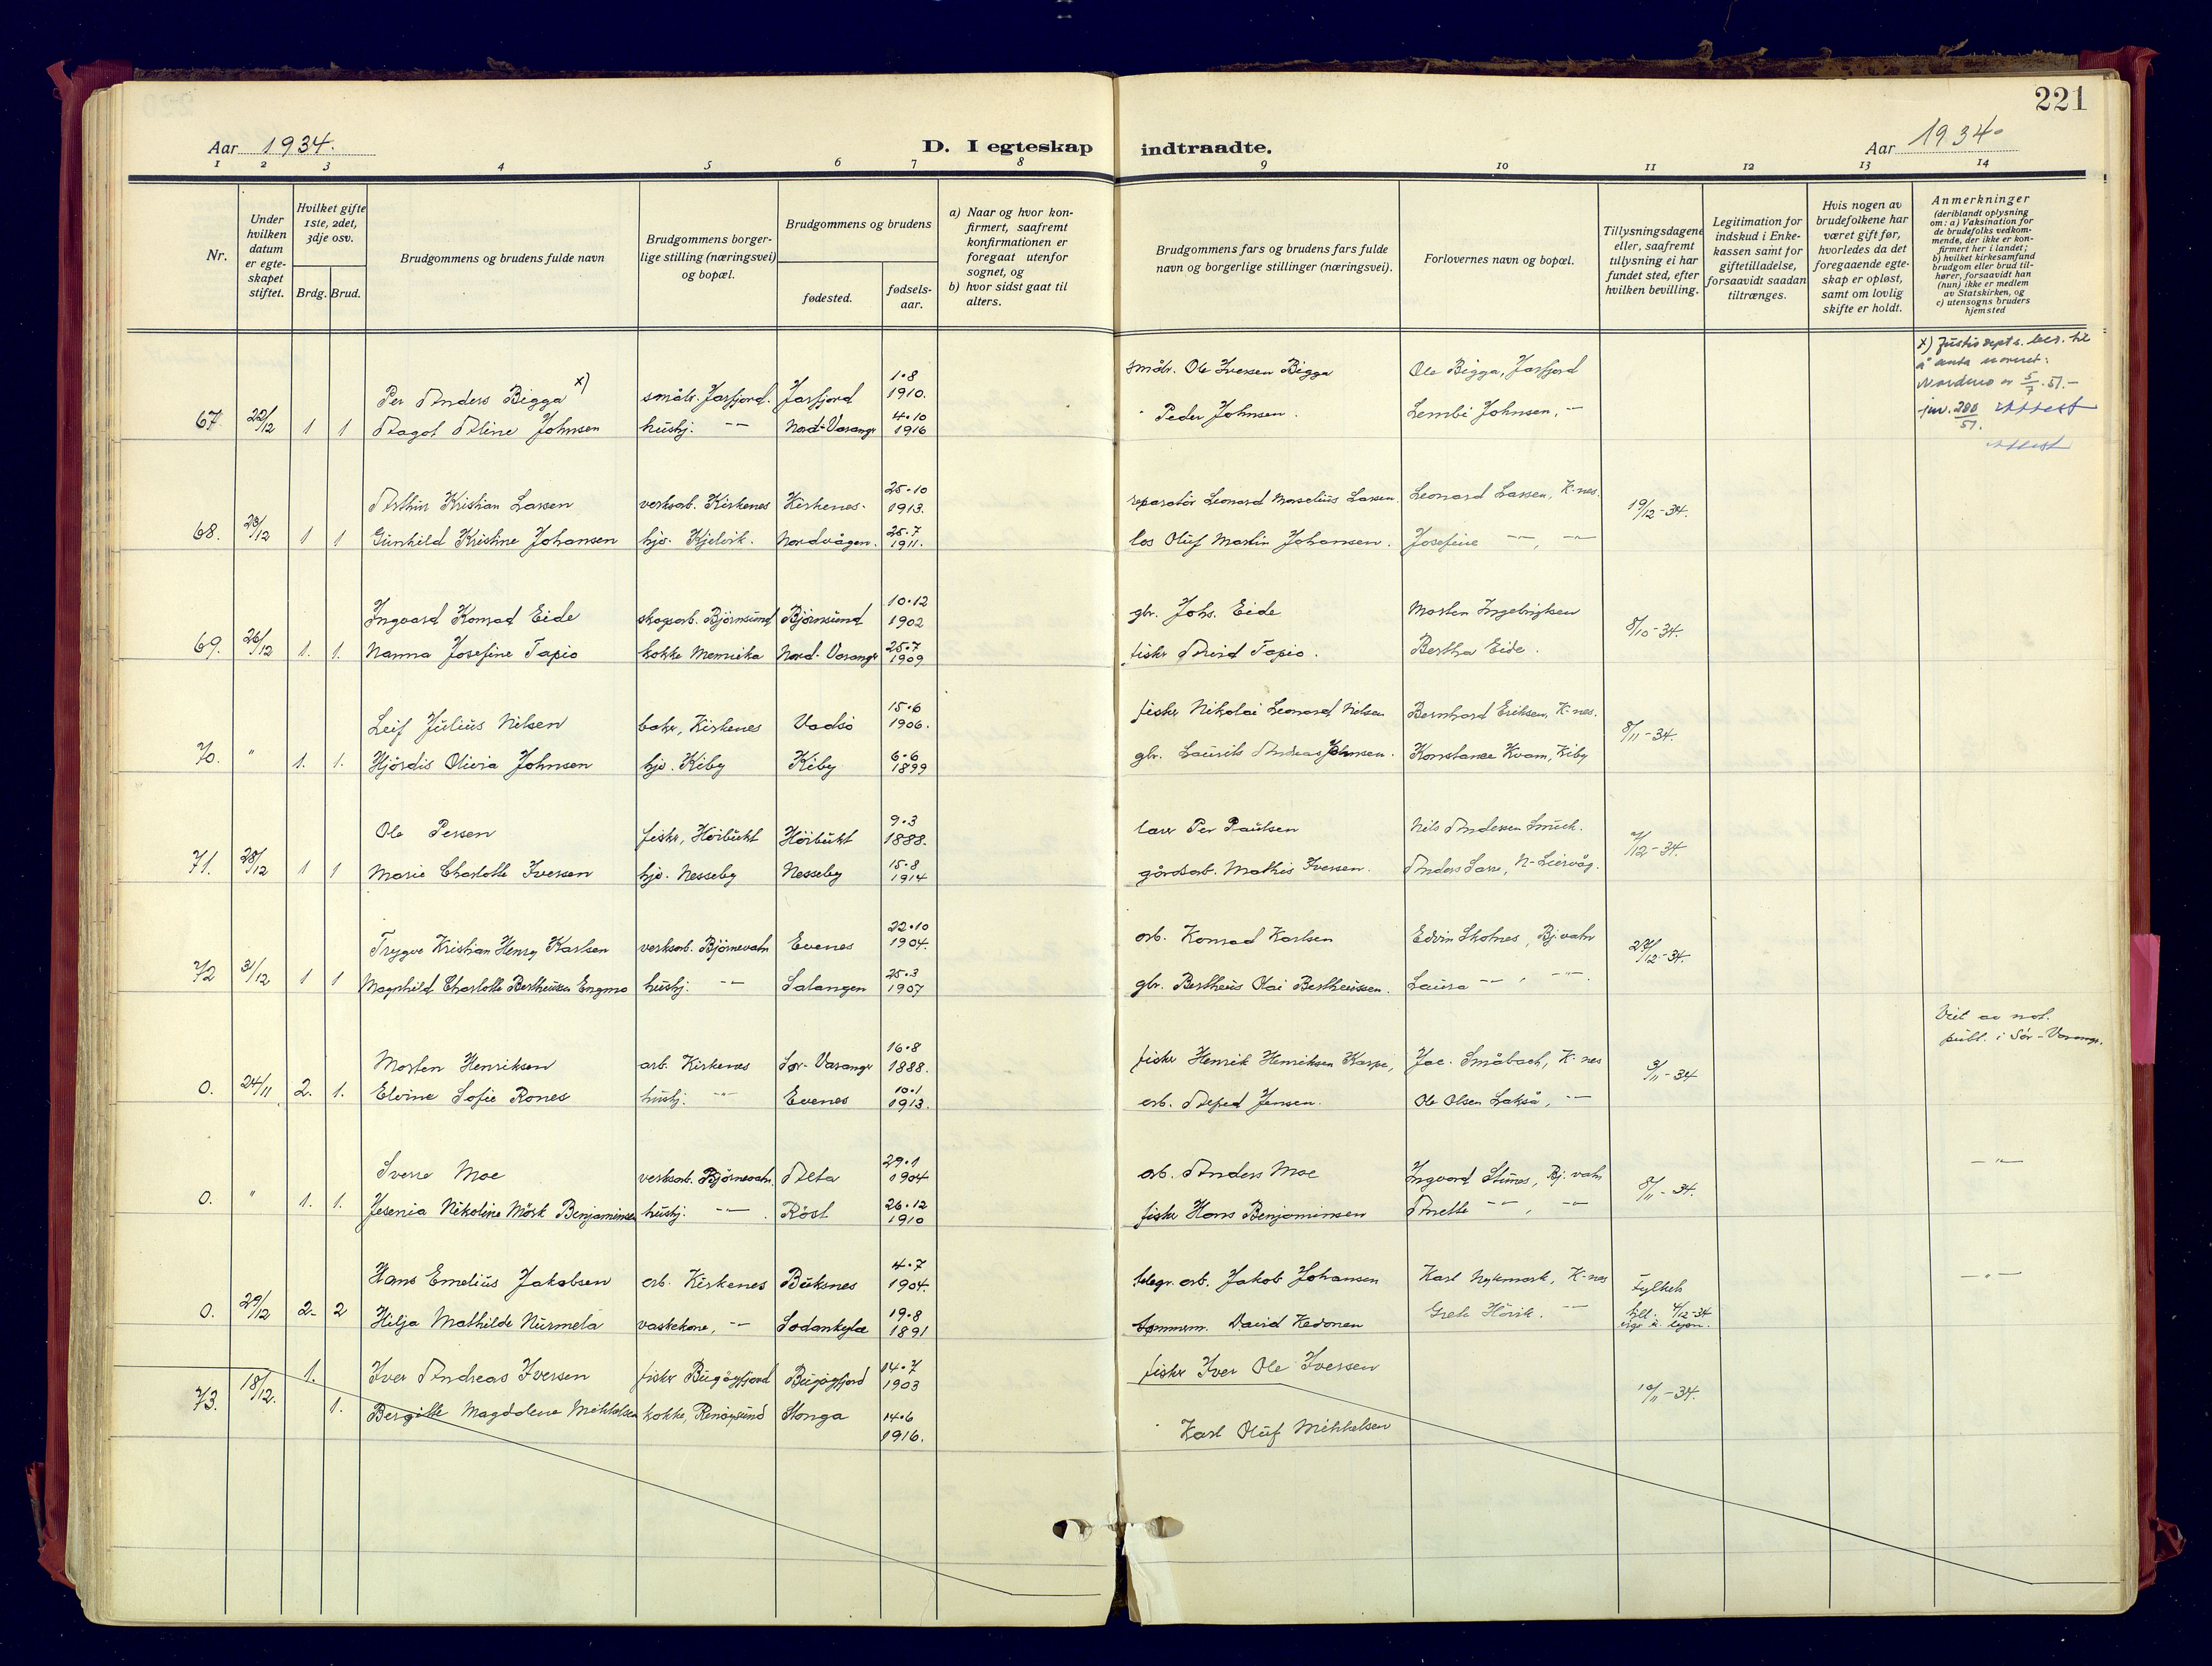 221
Aar 1934.
D. I egteskap indtraadte.
Aar 1934.
1 2 3 4 5 6 7 8 9 10 11 12 13 14
Nr.
Under hvilken datum er egte-skapet stiftet.
Hvilket gifte 1ste, 2det, 3dje osv.
Brdg. Brud.
Brudgommens og brudens fulde navn
Brudgommens borger-lige stilling (næringsvei) og bopæl.
Brudgommens og brudens
fødested.
fødsels-aar.
a) Naar og hvor kon-firmert, saafremt konfirmationen er foregaat utenfor sognet, og
b) hvor sidst gaat til alters.
Brudgommens fars og brudens fars fulde navn og borgerlige stillinger (næringsvei).
Forlovernes navn og bopæl.
Tillysningsdagene eller, saafremt tillysning ei har fundet sted, efter hvilken bevilling.
Legitimation for indskud i Enke-kassen samt for giftetilladelse, forsaavidt saadan tiltrænges.
Hvis nogen av brudefolkene har været gift før, hvorledes da det foregaaende egte-skap er opløst, samt om lovlig skifte er holdt.
Anmerkninger (deriblandt oplysning om: a) Vaksination for de brudefolks vedkom-mende, der ikke er kon-firmert her i landet; b) hvilket kirkesamfund brudgom eller brud til-hører, forsaavidt han (hun) ikke er medlem av Statskirken, og c) utensogns bruders hjemsted
Per Anders Bigga x) småbr. Jarfjord. Jarfjord 1.8 1910. småbr. Ole Iversen Bigga Ole Bigga, Jarfjord
67. 22/12 1 1 Dagot Aline Johnsen hushj. -"- Nord-Varanger 4.10 1916 " Peder Johnsen. Lembi Johnsen, -"-
jnr. 200/51. Attest
Attest
Arthur Kristian Larsen verksarb. Kirkenes Kirkenes. 25.10 1913. reparatör Leonard Marselius Larsen. Leonard Larsen, K-nes. 19/12-34.
68. 26/12 1 1 Gunhild Kristine Johansen hjo. Kjelvik. Nordvågen. 25.7 1911. los Oluf Martin Johansen. Josefine -"-, -"-
Ingvard Konrad Eide skogsarb. Björnsund Björnsund 10.12 1902 gbr. Johs. Eide Morten Ingebrigtsen 8/10-34.
69. 26/12 1. 1. Nanna Josefine Tapio kokke Mennika Nord-Varanger 25.7 1909 fiskr Arvid Tapio. Bertha Eide.
Leif Julius Nilsen bakr, Kirkenes Vadsö 15.6 1906. fiskr Nikolai Leonard Nilsen Bernhard Eriksen, K-nes. 8/11-34.
70. " 1. 1. Hjördis Olivia Johnsen hjo. Kiby Kiby 6.6 1899 gbr. Laurits Andreas Johnsen. Konstanse Kvam, Kiby
Ole Persen fiskr, Höibukt Höibukt 9.3 1888. Per Paulsen Nils Andersen 7/12-34.
71. 28/12 1 1 Marie Charlotte Iversen hjo. Nesseby Nesseby 15.8 1914 gårdsarb. Mathis Iversen. Anders Sarre,
Trygve Kristian Henry Karlsen verksarb. Björnevatn Evenes 22.10 1904. arb. Konrad Karlsen Edvin Skotnes, Bj.vatn 27/12-34.
72 31/12 1 1 Magnhild Charlotte Bertheussen Engmo hushj. -"- Salangen 25.3 1907 gbr. Bertheus Olai Bertheussen. Laura -"-, -"-.
Viet av not. publ. i Sør-Varanger.
Morten Henriksen arb. Kirkenes Sør-Varanger 16.8 1888. fiskr Henrik Henriksen Karpe, Jac. Småbach, K-nes 3/11-34
0. 24/11 2. 1. Elvine Sofie Rones hushj. -"- Evenes 10.1 1913. arb. Jensen. Ole Olsen Lakså, -"-
Sverre Moe verksarb. Björnevatn. Alta 29.1 1904 arb. Anders Moe Ingvard Stunes, Bj.vatn 8/11-34. -"-
0. " 1. 1. Jesenia Nikoline Mörk Benjaminsen hushj. -"-. Röst 26.12 1910 fiskr Hans Benjaminsen Anette -"-, -"-
Hans Emelius Jakobsen arb. Kirkenes Buksnes 4.7 1904. telegr. arb. Jakob Johansen Karl Nykmark, K-nes Fylkets -"-
0. 29/12 2- 2 Hilja Mathilde Nurmela vaskekone, -"- Sodankylæ 19.8 1891 tømmerm. David Kedonen Grete -"- till. 4/12-34
1. Iver Andreas Iversen fiskr Bugöyfjord Bugöyfjord 14.7 1903 fiskr Iver Ole Iversen
73. 18/12. 1. Bergitte Magdalena Mikkelsen kokke, Renöysund Stonga 14.6 1916. " Karl Oluf Mikkelsen 10/11-34.